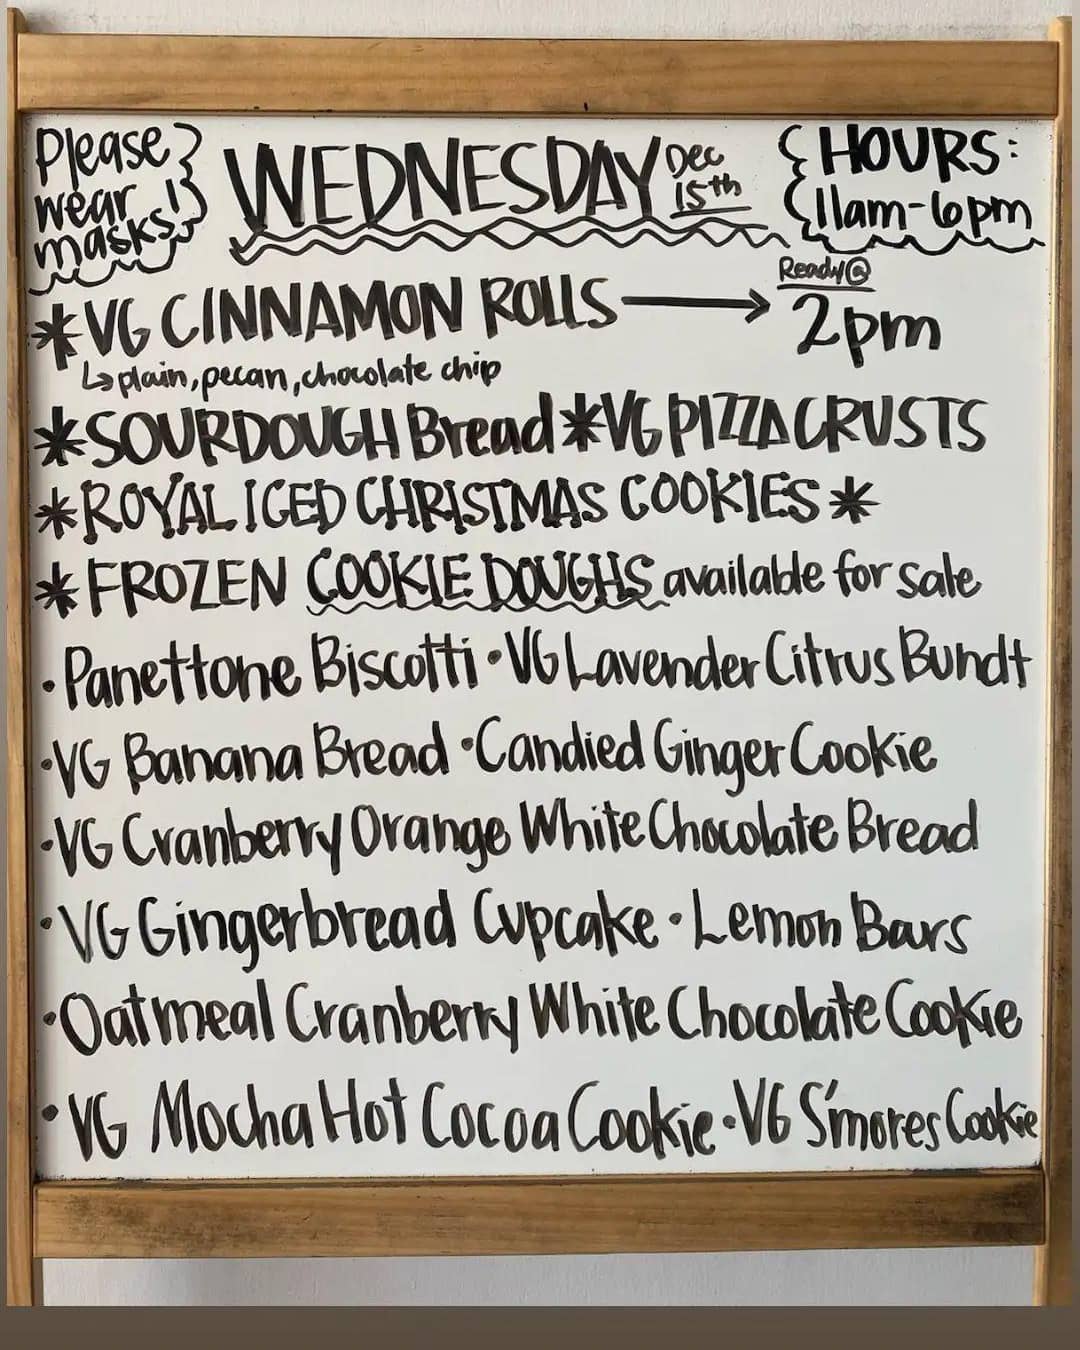 Please wear masks!
WEDNESDAY Dec 15th
HOURS: 11am-6pm
*VG CINNAMON ROLLS → Ready@ 2pm
↳ plain, pecan, chocolate chip
*SOURDOUGH Bread *VG PIZZA CRUSTS
*ROYAL ICED CHRISTMAS COOKIES *
*FROZEN COOKIE DOUGHS available for sale
· Panettone Biscotti · VG Lavender Citrus Bundt
· VG Banana Bread · Candied Ginger Cookie
· VG Cranberry Orange White Chocolate Bread
· VG Gingerbread Cupcake · Lemon Bars
· Oatmeal Cranberry White Chocolate Cookie
· VG Mocha Hot Cocoa Cookie · VG S'mores Cookie